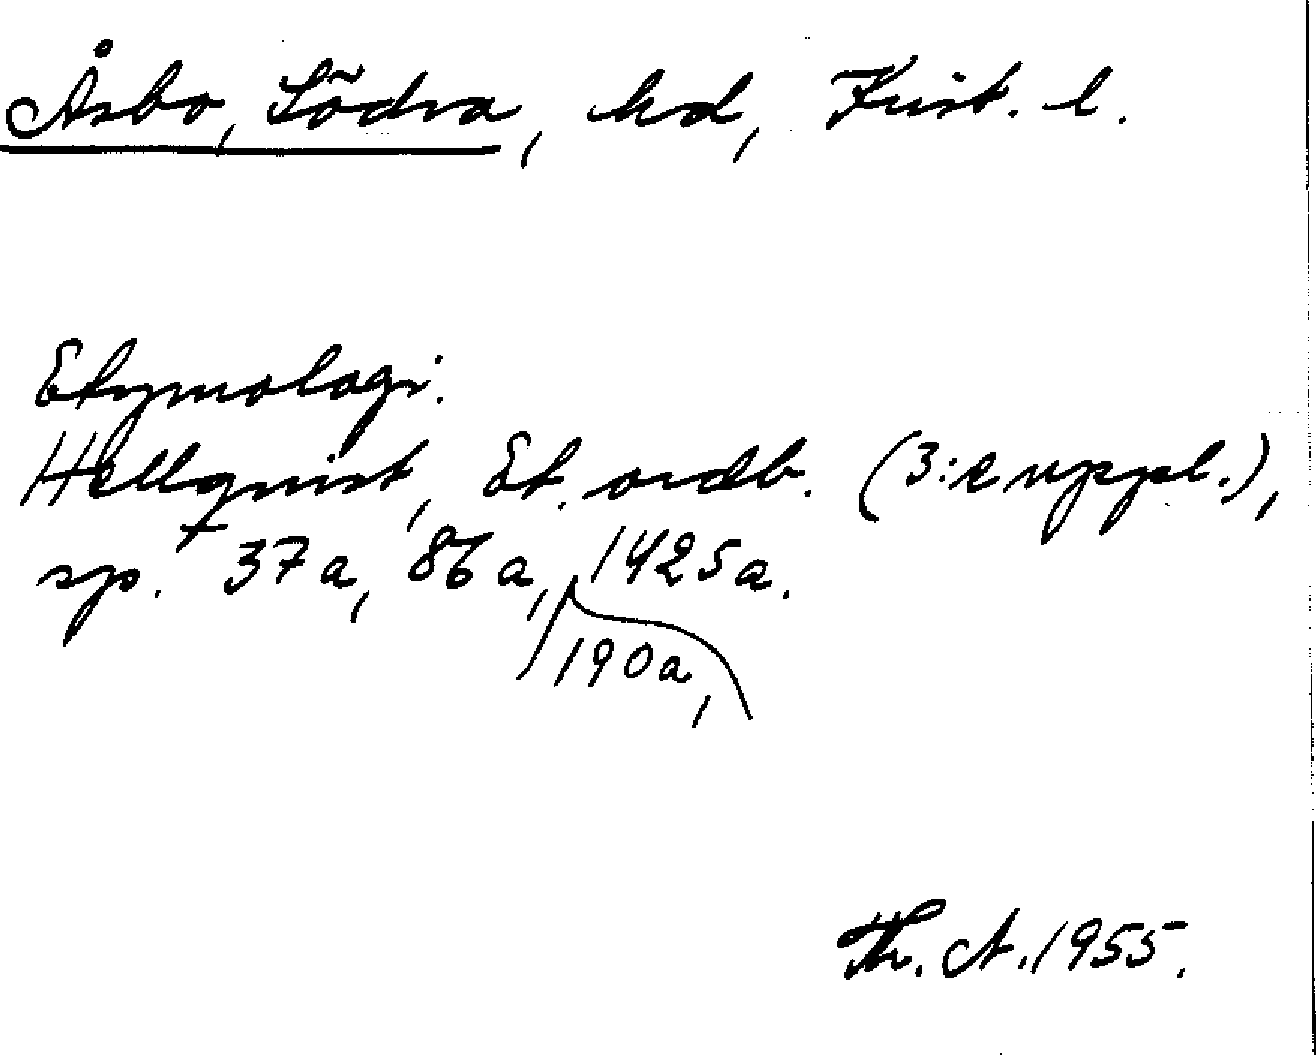 Åsbo, Södra, hd, Krist. l.
Etymologi.
Hellquist, Et. ordb. (3:e uppl.),
sp. 37a, 86a, 1425a.
190a,
Th. A. 1955.